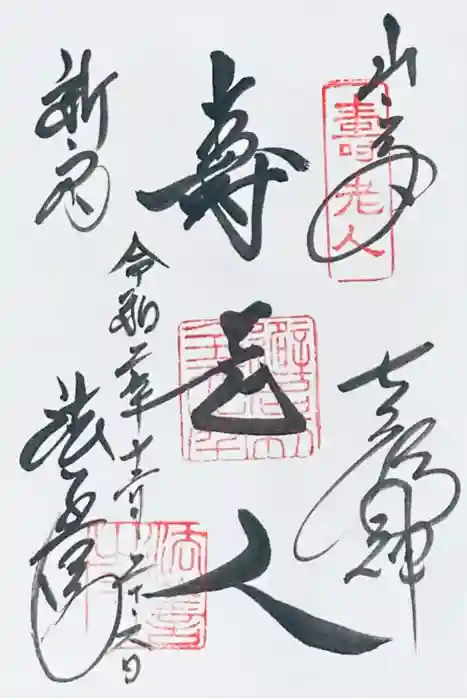 七福神
壽老人
壽老人
令和二年十二月二十六日
新宿
法善寺